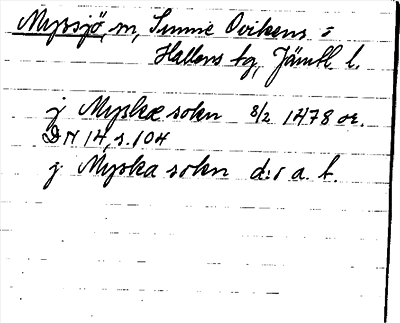 Myssjö, m, Sunne Ovikens o
Hallens tg, Jämtl. l.
j Myskæ sokn 8/2 1478 or.
DN 14, s. 104
j Myska sokn d:o a. b.